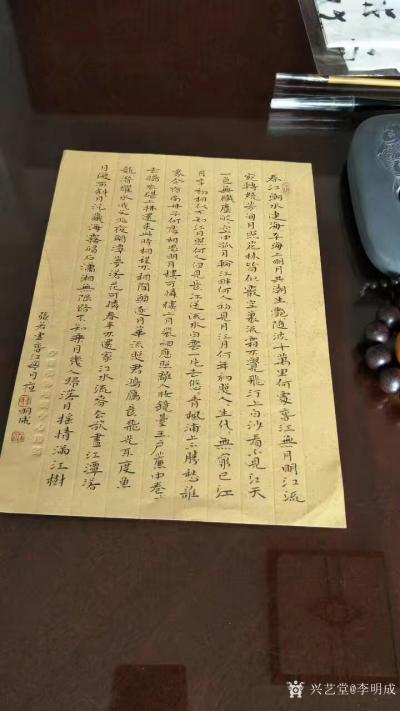 春江潮水連海平海上明月共潮生灩隨波千萬里何處春江無月明江流
宛轉繞芳甸月照花林皆似霰空裏流霜不覺飛汀上白沙看不見江天
一色無纖塵皎空中孤月輪江畔何人初見月江月何年初照人人生代無窮已江
月年初相似不知江月照何人但見長江送流水白雲一片去悠青楓浦上不勝愁誰
家今夜扁舟子何處相思明月樓可憐樓上月裴回應照離人妝鏡臺玉戶簾中卷不
去擣衣砧上拂還來此時相望不相聞願逐月華流照君鴻雁長飛光不度魚
龍潛躍水成文昨夜閒潭夢落花可憐春半不還家江水流春去欲盡江潭落
月復西斜月沉藏海霧碣石瀟湘無限路不知乘月幾人歸落月搖情滿江樹
張若虛春江花月夜 明成
兴艺堂@李明成